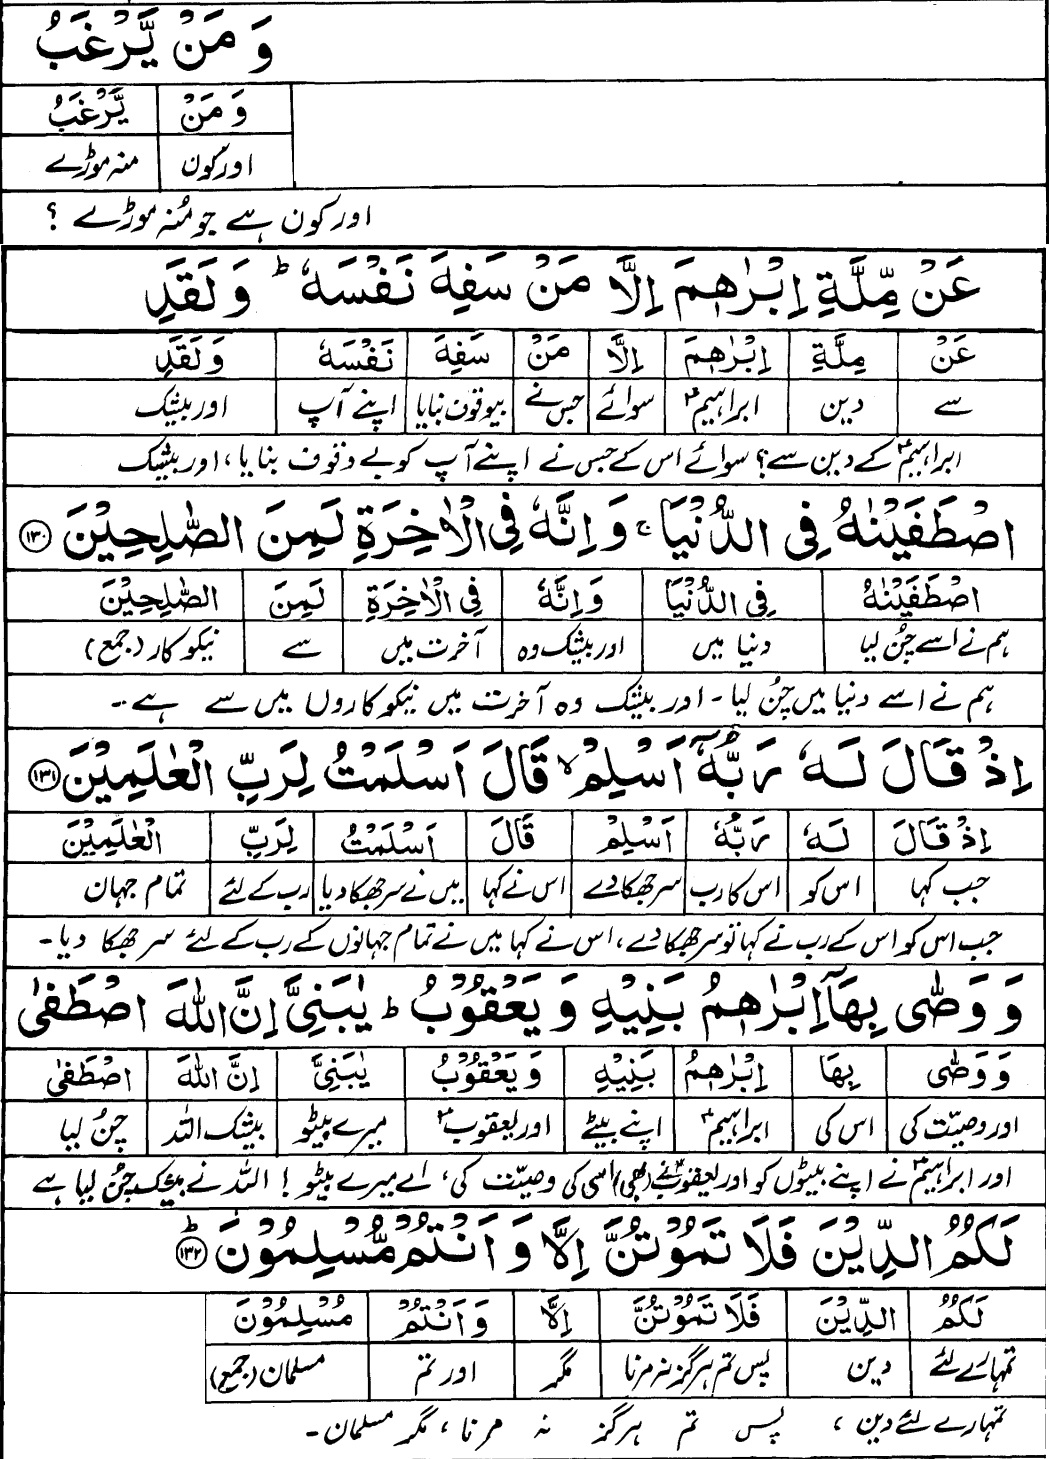 وَ مَنْ يَّرْغَبُ
وَ مَنْ يَّرْغَبُ
اور کون منہ موڑے
اور کون ہے جو مُنہ موڑے ؟
عَنْ مِّلَّةِ اِبْرٰهٖمَ اِلَّا مَنْ سَفِهَ نَفْسَهٗ ؕ وَ لَقَدِ
عَنْ مِلَّةِ اِبْرٰهٖمَ اِلَّا مَنْ سَفِهَ نَفْسَهٗ وَ لَقَدِ
سے دین ابراہیمؑ سوائے جس نے بیوقوف بنایا اپنے آپ اور بیشک
ابراہیمؑ کے دین سے؟ سوائے اس کے جس نے اپنے آپ کو بے وقوف بنایا، اور بیشک
اصْطَفَيْنٰهُ فِي الدُّنْيَا ۚ وَ اِنَّهٗ فِي الْاٰخِرَةِ لَمِنَ الصّٰلِحِيْنَ ﴿۱۳۰﴾
اصْطَفَيْنٰهُ فِي الدُّنْيَا وَ اِنَّهٗ فِي الْاٰخِرَةِ لَمِنَ الصّٰلِحِيْنَ
ہم نے اسے چُن لیا دنیا میں اور بیشک وہ آخرت میں سے نیکو کار (جمع)
ہم نے اسے دنیا میں چُن لیا۔ اور بیشک وہ آخرت میں نیکو کاروں میں سے ہے۔
اِذْ قَالَ لَهٗ رَبُّهٗۤ اَسْلِمْ ۙ قَالَ اَسْلَمْتُ لِرَبِّ الْعٰلَمِيْنَ ﴿۱۳۱﴾
اِذْ قَالَ لَهٗ رَبُّهٗ اَسْلِمْ قَالَ اَسْلَمْتُ لِرَبِّ الْعٰلَمِيْنَ
جب کہا اس کو اس کا رب سر جھکا دے اس نے کہا میں نے سر جھکا دیا رب کے لئے تمام جہان
جب اس کو اس کے رب نے کہا تو سر جھکا دے، اس نے کہا میں نے تمام جہانوں کے رب کے لئے سر جھکا دیا۔
وَ وَصّٰى بِهَاۤ اِبْرٰهٖمُ بَنِيْهِ وَ يَعْقُوْبُ ؕ يٰبَنِيَّ اِنَّ اللّٰهَ اصْطَفٰى
وَ وَصّٰى بِهَا اِبْرٰهٖمُ بَنِيْهِ وَ يَعْقُوْبُ يٰبَنِيَّ اِنَّ اللّٰهَ اصْطَفٰى
اور وصیّت کی اس کی ابراہیمؑ اپنے بیٹے اور یعقوبؑ میرے بیٹو بیشک اللہ چُن لیا
اور ابراہیمؑ نے اپنے بیٹوں کو اور یعقوبؑ نے (بھی) اسی کی وصیّت کی، اے میرے بیٹو ! اللہ نے بیشک چُن لیا ہے
لَكُمُ الدِّيْنَ فَلَا تَمُوْتُنَّ اِلَّا وَ اَنْتُمْ مُّسْلِمُوْنَ ؕ﴿۱۳۲﴾
لَكُمُ الدِّيْنَ فَلَا تَمُوْتُنَّ اِلَّا وَ اَنْتُمْ مُسْلِمُوْنَ
تمہارے لئے دین پس تم ہرگز نہ مرنا مگر اور تم مسلمان (جمع)
تمہارے لئے دین ، پس تم ہرگز نہ مرنا ، مگر مسلمان۔